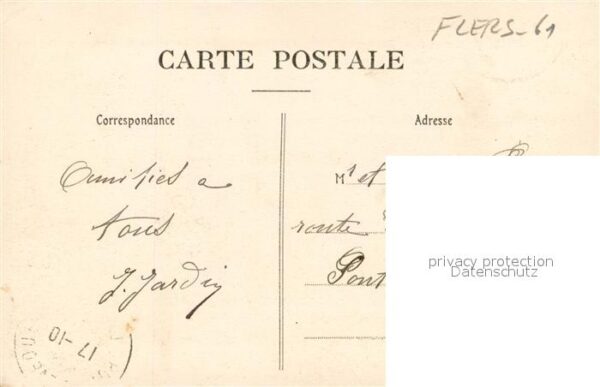 FLERS-61
CARTE POSTALE
Correspondance
Adresse
Amitiés a
tous
J. Jardin
Mr et
route
Pont
privacy protection
Datenschutz
17-10